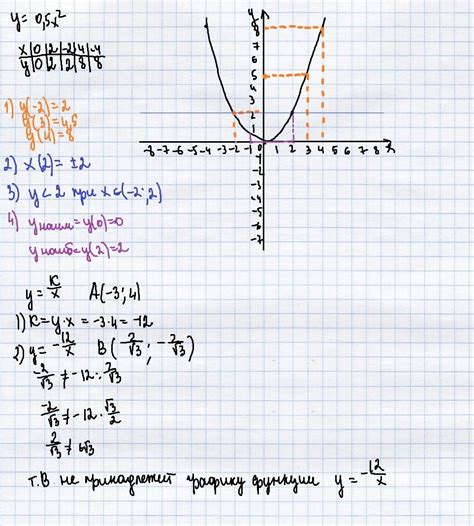 y = 0,5x²
x | 0 | 2 | -2 | 4 | -4
y | 0 | 2 | 2 | 8 | 8
1) y(-2) = 2
y(3) = 4,5
y(4) = 8
2) x(2) = ±2
3) y < 2 при x ∈ (-2; 2)
4) y наим = y(0) = 0
y наиб = y(2) = 2
y
8
7
6
5
4
3
2
1
-8 -7 -6 -5 -4 -3 -2 -1 0 1 2 3 4 5 6 7 8 x
-1
-2
-3
-4
-5
-6
-7
y = K/x A(-3; 4)
1) K = y · x = -3 · 4 = -12
2) y = -12/x B(2/√3; -2/√3)
-2/√3 ≠ -12 : 2/√3
-2/√3 ≠ -12 · √3/2
2/√3 ≠ 6√3
т.В. не принадлежит графику функции y = -12/x